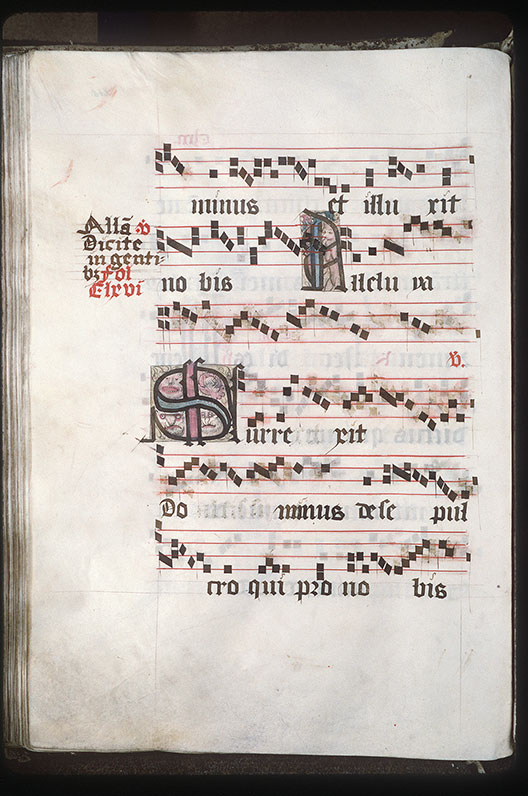 minus et illu xit
Alla͞ ℣
Dicite
in genti-
bꝫ fol
Clxvi
no bis Alleluya
℣.
Surre xit
Do minus de se pul
cro qui pro no bis